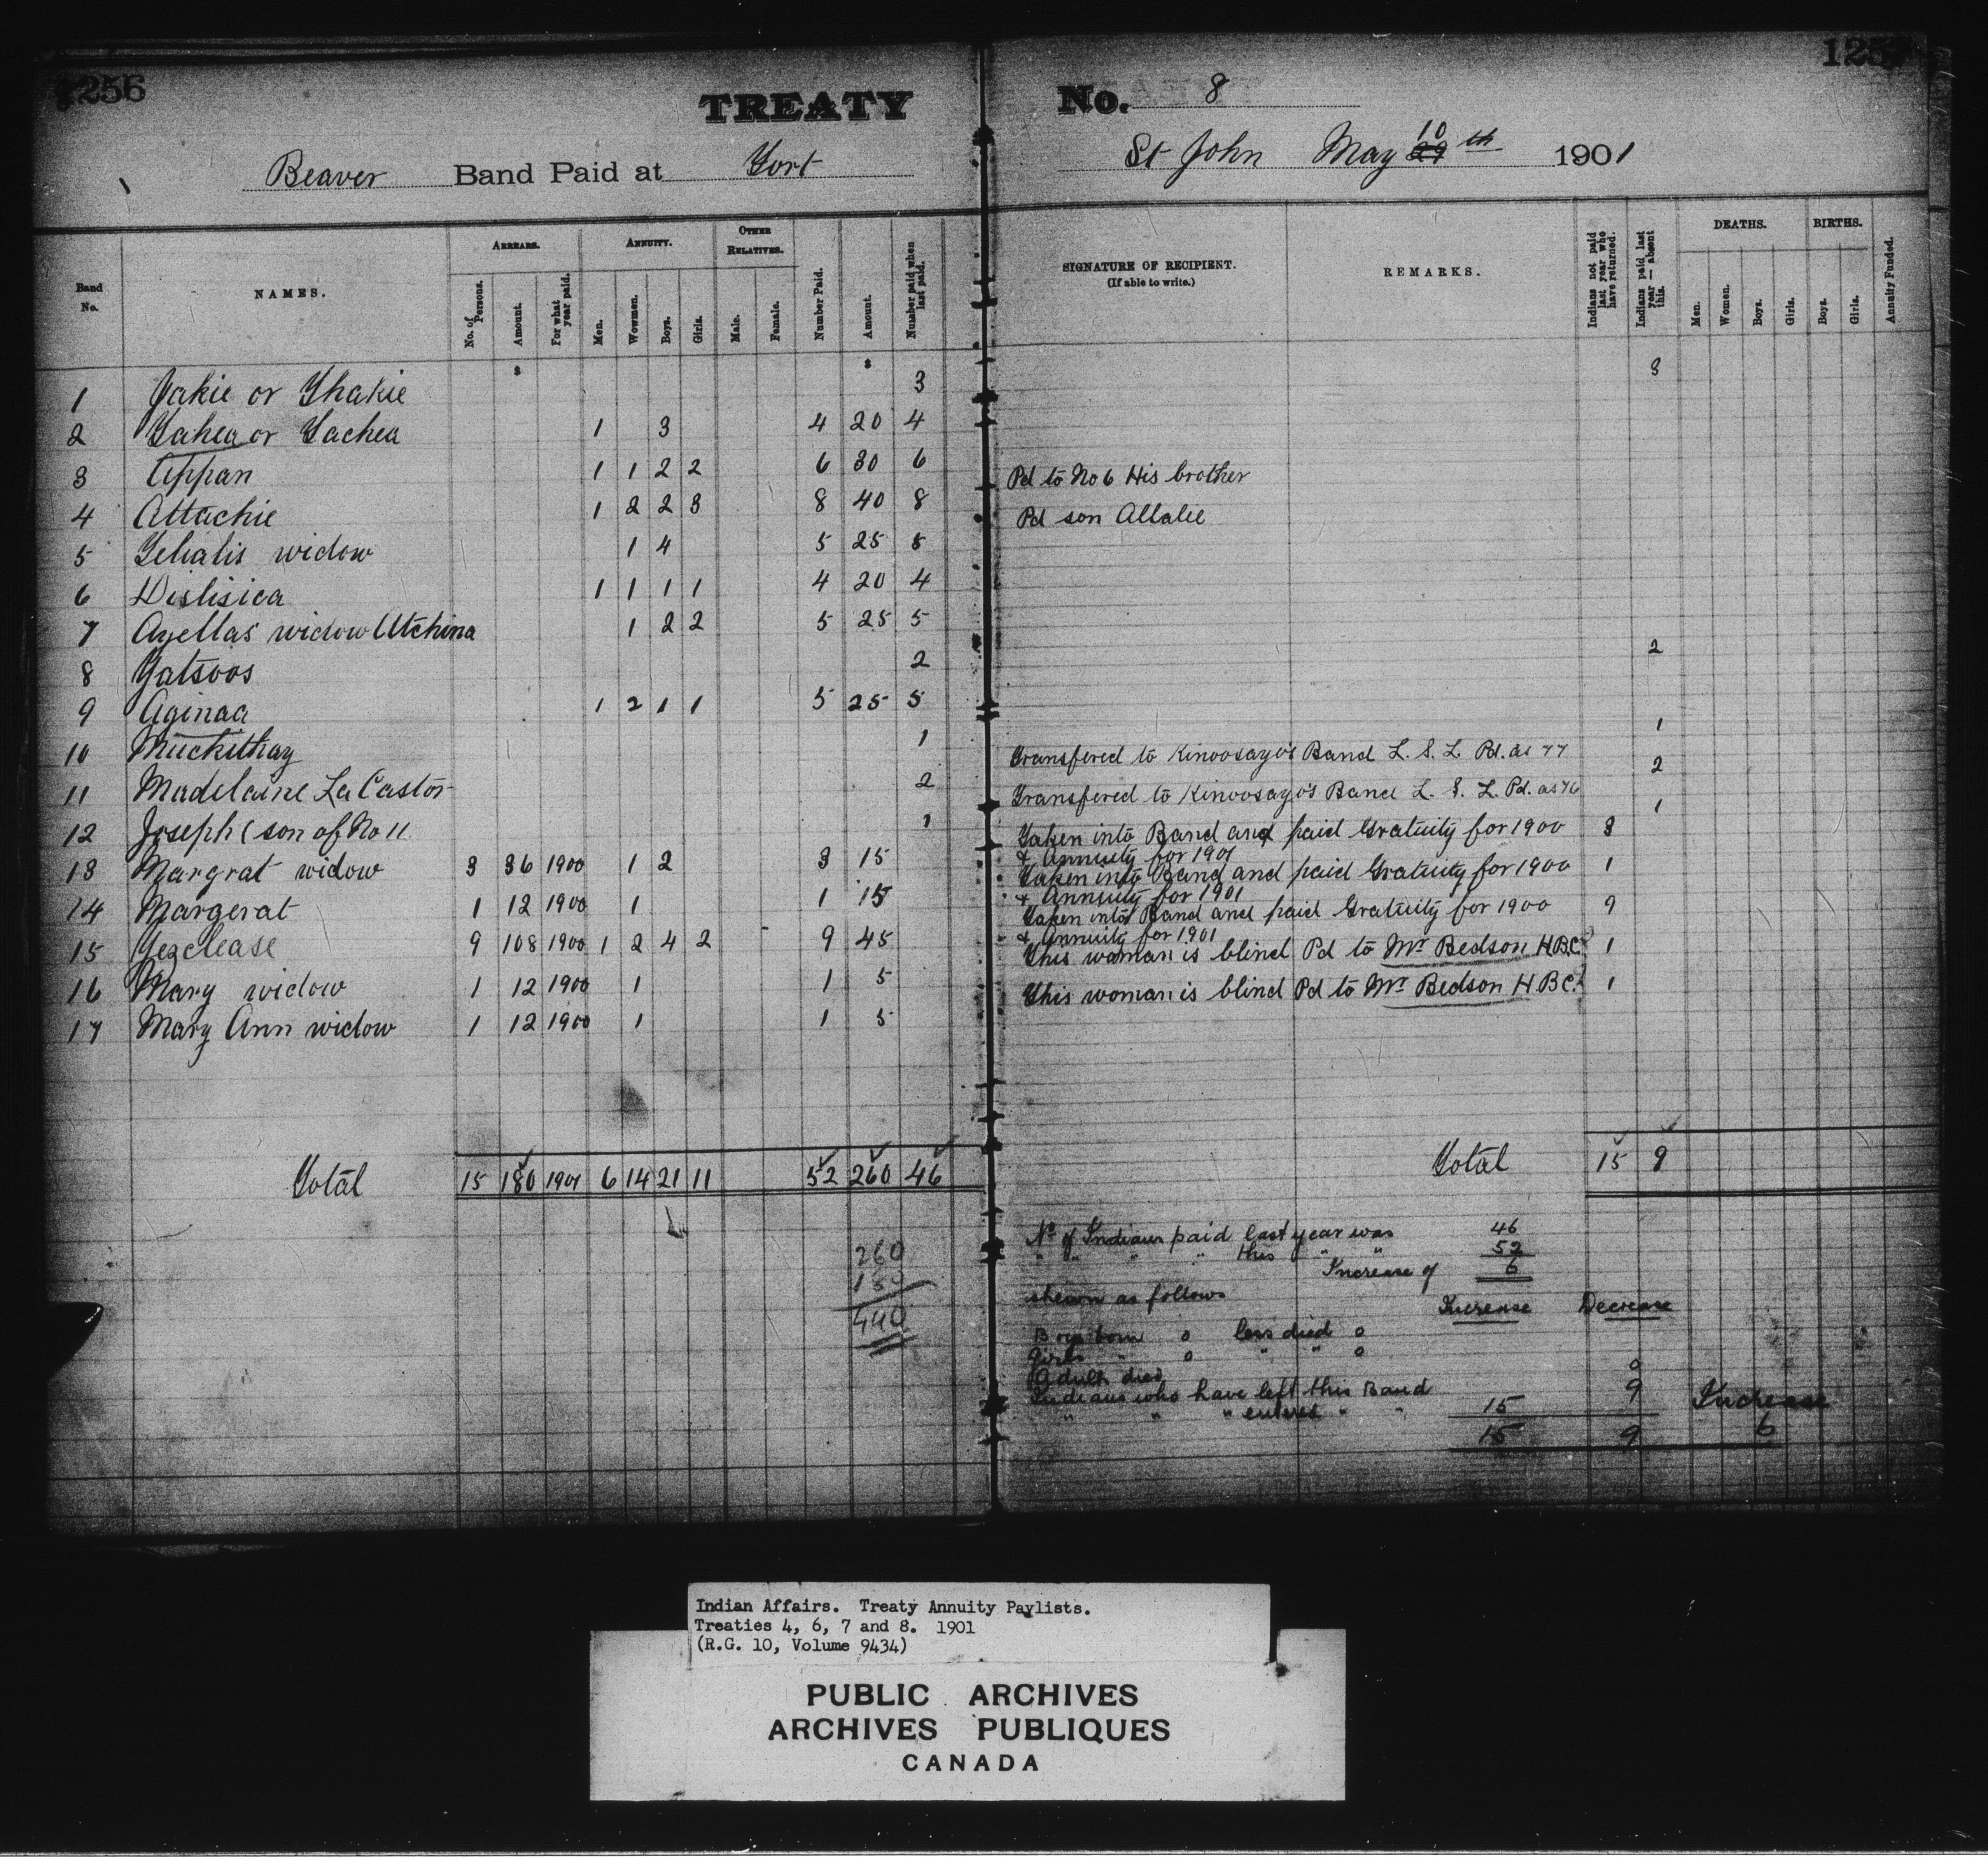 1256
TREATY No. 8
Beaver Band Paid at Fort St John May 29 10 th 1901
Band No.
NAMES.
ARREARS.
No. of Persons.
Amount.
For what year paid.
ANNUITY.
Men.
Wowmen.
Boys.
Girls.
OTHER RELATIVES.
Male.
Female.
Number Paid.
Amount.
Number paid when last paid.
SIGNATURE OF RECIPIENT.
(If able to write.)
REMARKS.
Indians not paid last year who have returned.
Indians paid last year — absent this.
DEATHS.
Men.
Women.
Boys.
Girls.
BIRTHS.
Boys.
Girls.
Annuity Funded.
$ $
1 Jakie or Thakie 3 3
2 Yahea or Yachea 1 3 4 20 4
3 Appan 1 1 2 2 6 30 6 Pd to No 6 His brother
4 Attachie 1 2 2 3 8 40 8 Pd son Allalie
5 Yelialis widow 1 4 5 25 5
6 Dislisica 1 1 1 1 4 20 4
7 Azellas widow Utchina 1 2 2 5 25 5
8 Yatsoos 2 2
9 Aginaa 1 2 1 1 5 25 5
10 Muckithay 1 1
Transfered to Kinoosayo's Band L. S. L. Pd. as 77
11 Madelaine La Castor 2 2
Transfered to Kinoosayo's Band L. S. L. Pd. as 76
12 Joseph (son of No 11 1 1
Taken into Band and paid Gratuity for 1900 3
& Annuity for 1901
13 Margrat widow 3 36 1900 1 2 3 15
Taken into Band and paid Gratuity for 1900 1
& Annuity for 1901
14 Margerat 1 12 1900 1 1 15
Taken into Band and paid Gratuity for 1900 9
& Annuity for 1901
15 Yezclease 9 108 1900 1 2 4 2 9 45
This woman is blind Pd to Mr Bedson H.B.C. 1
16 Mary widow 1 12 1900 1 1 5
This woman is blind Pd to Mr Bedson H.B.C. 1
17 Mary Ann widow 1 12 1900 1 1 5
Total 15 180 1901 6 14 21 11 52 260 46 Total 15 9
260
180
440
No of Indians paid last year was 46
" " " " this " " 52
Increase of 6
shewn as follows Increase Decrease
Boys born 0 less died 0
Girls " 0 " " 0
Adults died 0
Indians who have left this Band 9
" " " entered " " 15 Increase
15 9 6
Indian Affairs. Treaty Annuity Paylists.
Treaties 4, 6, 7 and 8. 1901
(R.G. 10, Volume 9434)
PUBLIC ARCHIVES
ARCHIVES PUBLIQUES
CANADA